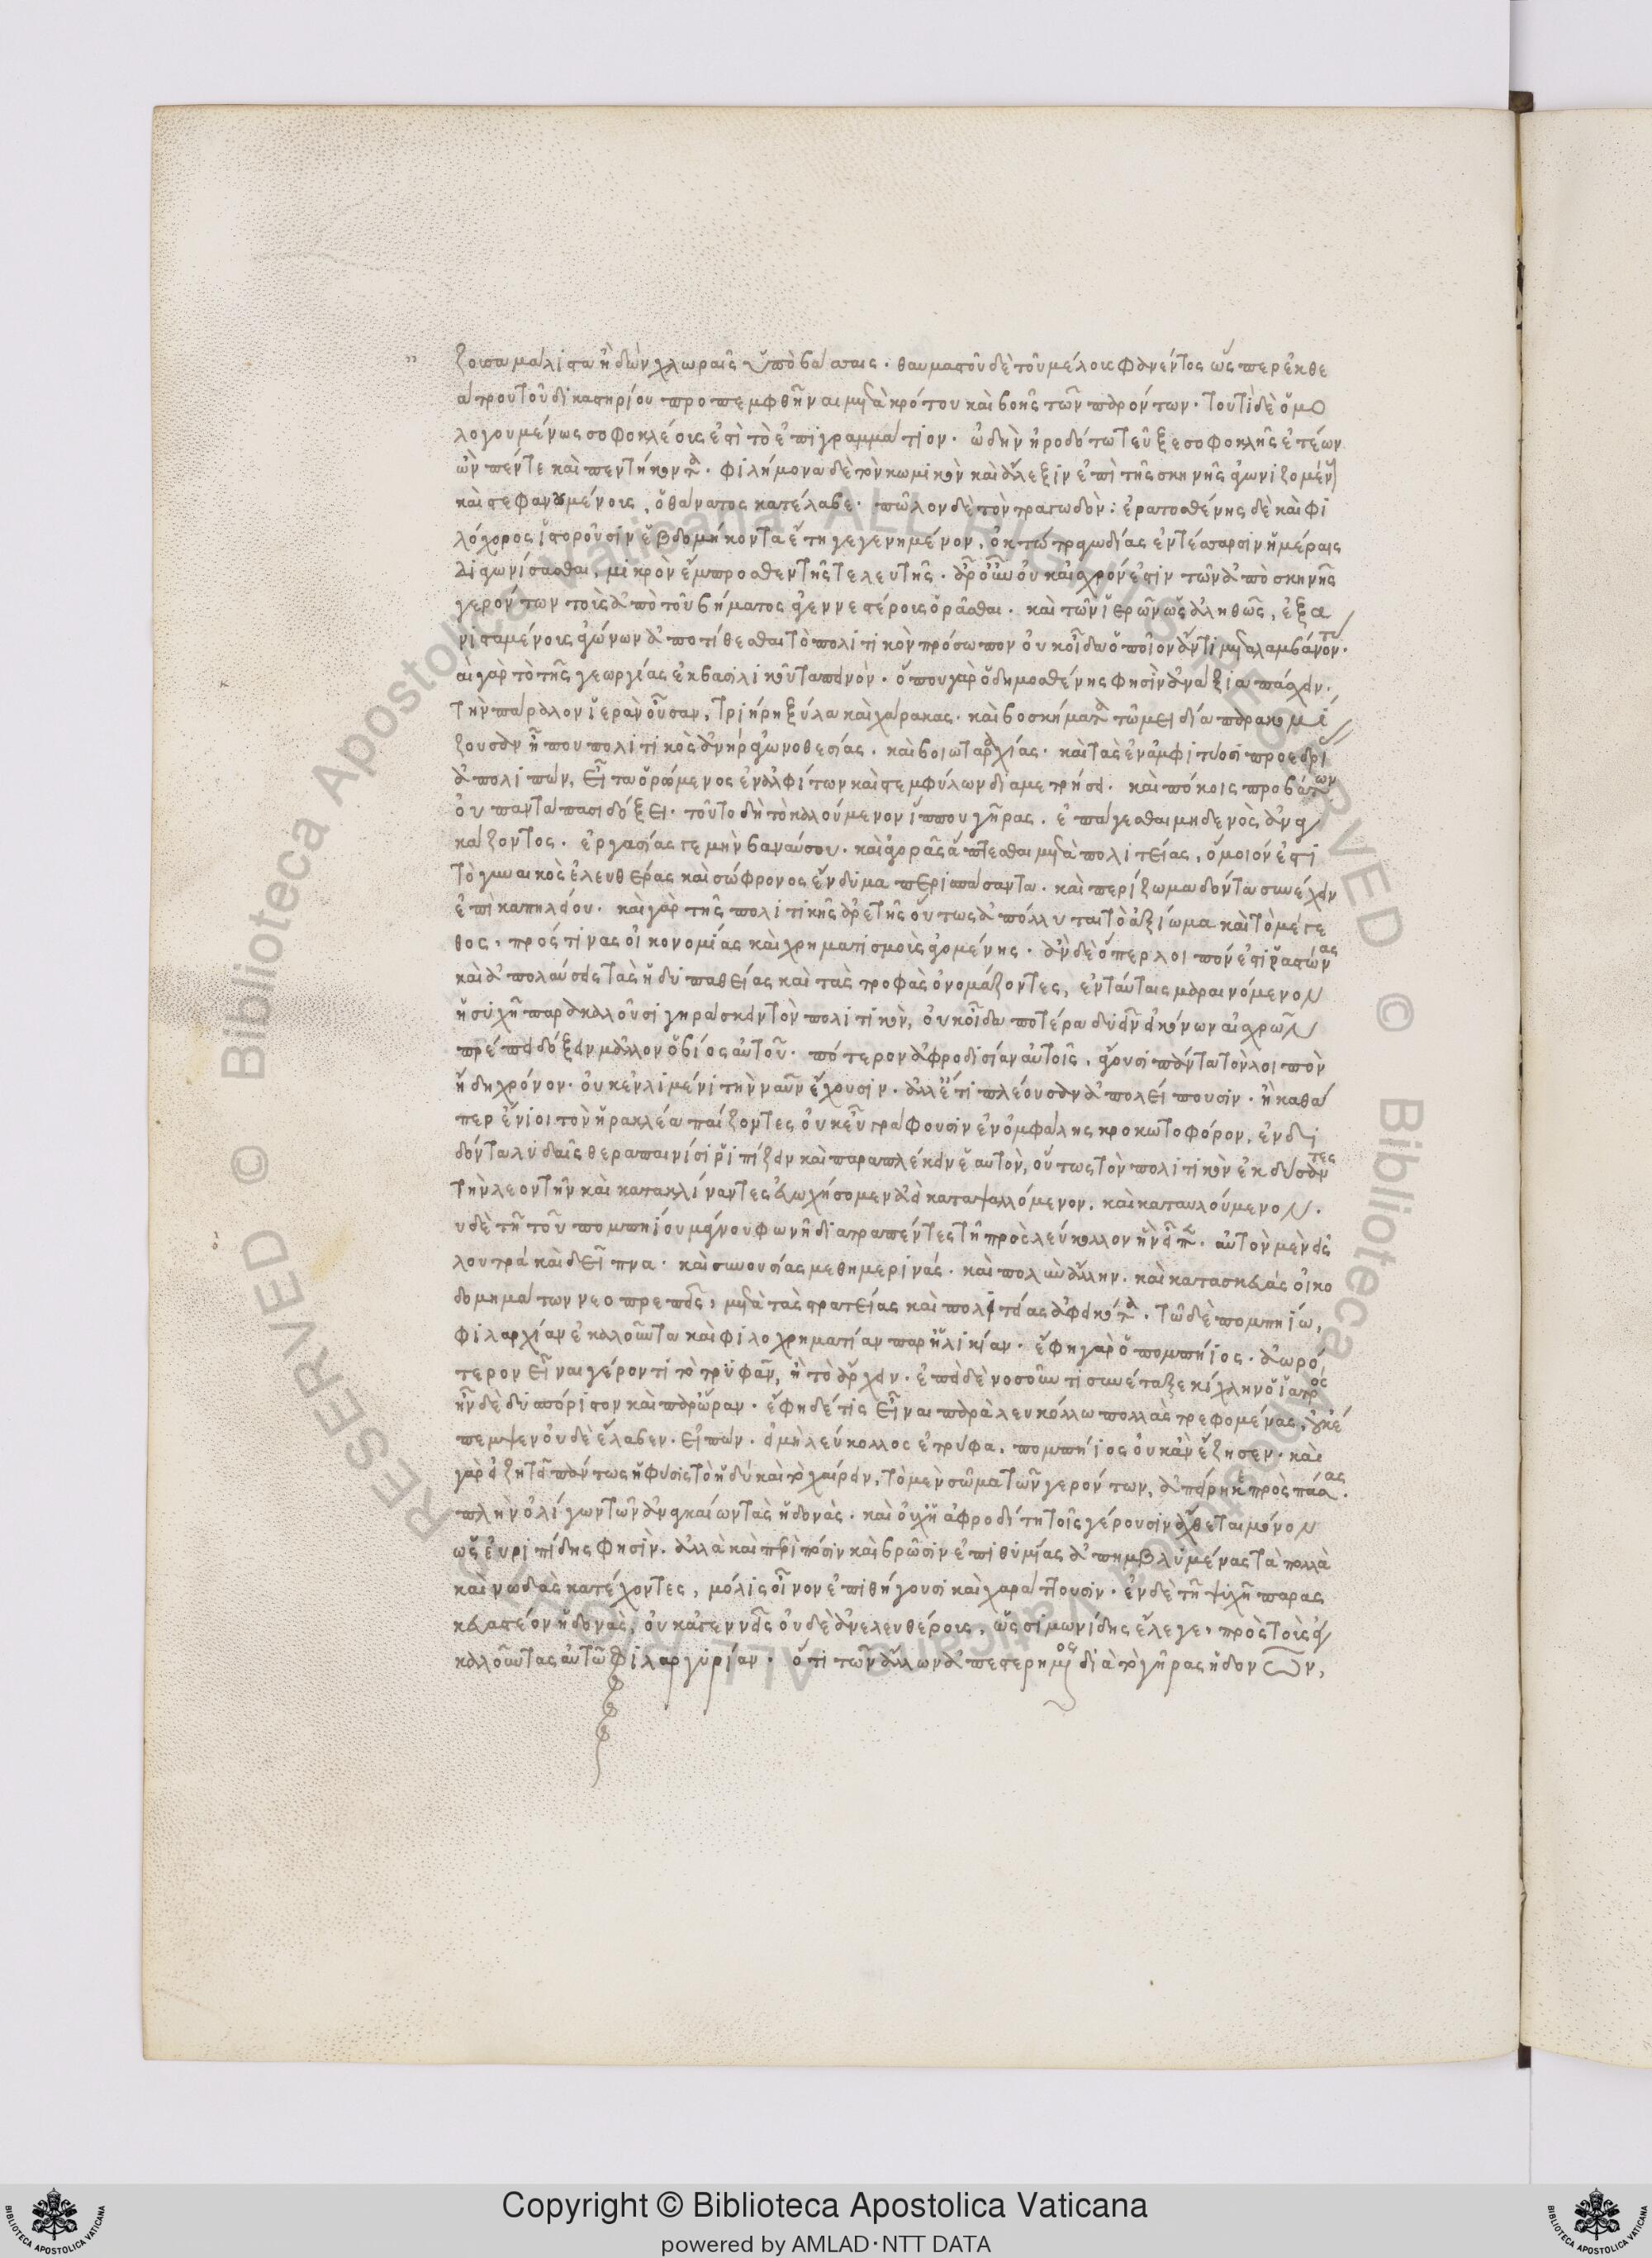 ζουσα μάλιστα ἠδὼν χλωραῖς ὑπὸ βάσσαις. θαυμαστοῦ δὲ τοῦ μέλους φανέντος ὥσπερ ἐκ θε
άτρου τοῦ δικαστηρίου προπεμφθῆναι μετὰ κρότου καὶ βοῆς τῶν παρόντων. τουτὶ δὲ ὁμο
λογουμένως σοφοκλέους ἐστὶ τὸ ἐπιγραμμάτιον. ὠδὴν ἡροδότω τεῦξε σοφοκλῆς ἐτέων
ὢν πέντε καὶ πεντήκοντα. φιλήμονα δὲ τὸν κωμικὸν καὶ ἄλεξιν ἐπὶ τῆς σκηνῆς ἀγωνιζομένους
καὶ στεφανουμένους, ὁ θάνατος κατέλαβε. πῶλον δὲ τὸν τραγωδὸν: ἐρατοσθένης δὲ καὶ φι
λόχορος ἱστοροῦσιν ἑβδομήκοντα ἔτη γεγενημένον, ὀκτὼ τραγωδίας ἐν τέσσαρσιν ἡμέραις
διαγωνίσασθαι, μικρὸν ἔμπροσθεν τῆς τελευτῆς. ἆρ' οὖν οὐκ αἰσχρόν ἐστιν τῶν ἀπὸ σκηνῆς
γερόντων τοὺς ἀπὸ τοῦ βήματος ἀγεννεστέρους ὁρᾶσθαι. καὶ τῶν ἱερῶν ὡς ἀληθῶς, ἐξα
νισταμένους ἀγώνων ἀποτίθεσθαι τὸ πολιτικὸν πρόσωπον οὐκ οἶδα ὁποῖον ἀντιμεταλαμβάνοντας.
αι γὰρ τὸ τῆς γεωργίας ἐκ βασιλικοῦ ταπεινόν. ὅπου γὰρ ὁ δημοσθένης φησὶν ἀνάξια πάσχειν.
τὴν πάραλον ἱερὰν οὖσαν, τριήρη ξύλα καὶ χάρακας. καὶ βοσκήματα τῶ μειδία παρακομί
ζουσαν ἦπου πολιτικὸς ἀνὴρ ἀγωνοθεσίας. καὶ βοιωταρχίας. καὶ τὰς ἐν ἀμφικτύοσι προεδρί
ἀπολιπών, εἶτα ὁρώμενος ἐν ἀλφίτων καὶ στεμφύλων διαμετρήσει. καὶ πόκοις προβάτων
οὐ πάνταπασι δόξει. τοῦτο δὴ τὸ καλούμενον ἵππου γῆρας. ἐπάγεσθαι μηδενὸς ἀναγ
κάζοντος. ἐργασίας γε μὴν βαναύσου. καὶ ἀγορᾶς ἅπτεσθαι μετὰ πολιτείας, ὅμοιόν ἐστι
τὸ γυναικὸς ἐλευθέρας καὶ σώφρονος ἔνδυμα περισπάσαντα. καὶ περίζωμα δόντα συνέχειν
ἐπὶ καπηλείου. καὶ γὰρ τῆς πολιτικῆς ἀρετῆς οὕτως ἀπόλλυται τὸ ἀξίωμα καὶ τὸ μέγε
θος, πρός τινας οἰκονομίας καὶ χρηματισμοὺς ἀγομένης. ἂν δὲ ὅπερ λοιπόν ἐστι ῥαστώνας
καὶ ἀπολαύσεις τὰς ἡδυπαθείας καὶ τὰς τροφὰς ὀνομάζοντες, ἐν ταύταις μαραινόμενον
ἡσυχῆ παρακαλοῦσι γηράσκειν τὸν πολιτικὸν, οὐκ οἶδα ποτέρα δυεῖν εἰκόνων αἰσχρῶν
πρέπει δόξειν μᾶλλον ὁ βίος αὐτοῦ. πότερον ἀφροδισίαν αὐτοῖς, ἄγουσι πάντα τὸν λοιπὸν
ἤδη χρόνον. οὐκ ἐν λιμένι τὴν ναῦν ἔχουσιν. ἀλλ' ἔτι πλέουσαν ἀπολείπουσιν. ἢ καθά
περ ἔνιοι τὸν ἡρακλέα παίζοντες οὐκ εὖ γράφουσιν ἐν ὀμφάλης κροκωτοφόρον, ἐνδι
δόντα λυδαῖς θεραπαινίσι ῥιπίζειν καὶ παραπλέκειν ἑαυτὸν, οὕτως τὸν πολιτικὸν ἐκδύσαντες
τὴν λεοντῆν καὶ κατακλίναντες εὐωχήσομεν ἀεὶ καταψαλλόμενον, καὶ καταυλούμενον.
υδὲ τῆ τοῦ πομπηίου μάγνου φωνῆ διατραπέντες τῆ πρὸς λεύκολλον αὐτὸν μὲν εἰς
λουτρὰ καὶ δεῖπνα. καὶ συνουσίας μεθημερινάς. καὶ πολὺν ἄλλην. καὶ κατασκευὰς οἰκο
δομημάτων νεοπρεπεῖς, μετὰ τὰς στρατείας καὶ πολιτείας ἀφεικότα. τῶ δὲ πομπηίω,
φιλαρχίαν ἐκαλοῦντα καὶ φιλοχρηματίαν παρ' ἡλικίαν. ἔφη γὰρ ὁ πομπήιος. ἀωρό
τερον εἶναι γέροντι τὸ τρυφᾶν, ἢ τὸ ἄρχειν. ἐπεὶ δὲ νοσοῦντι συνέταξε κίχλην ὁ ἰατρὸς
ἦν δὲ δυσπόριστον καὶ παρ' ὥραν. ἔφη δέ τις εἶναι παρὰ λευκόλλω πολλὰς τρεφομένας, οὐκ ἔ
πεμψεν οὐδὲ ἔλαβεν. εἰπών. εἰ μὴ λεύκολλος ἐτρύφα, πομπήιος οὐκ ἂν ἔζησεν. καὶ
γὰρ εἰ ζητεῖ πάντως ἡ φύσις τὸ ἡδὺ καὶ τὸ χαίρειν, τὸ μὲν σῶμα τῶν γερόντων, ἀπείρηκε πρὸς πάσας.
πλὴν ὀλίγων τῶν ἀναγκαίων τὰς ἡδονάς. καὶ οὐχὶ ἀφροδίτη τοῖς γέρουσιν ἄχθεται μόνον
ὡς εὐριπίδης φησὶν. ἀλλὰ καὶ περὶ πόσιν καὶ βρῶσιν ἐπιθυμίας ἀπημβλυμένας τὰ πολλὰ
καὶ νωδὰς κατέχοντες, μόλις οἷνον ἐπιθήγουσι καὶ χαράττουσιν. ἐν δὲ τῆ ψυχῆ παρασ
κευαστέον ἡδονὰς, οὐκ ἀγεννεῖς οὐδὲ ἀνελευθέρους, ὡς σιμωνίδης ἔλεγε, πρὸς τοὺς ἐγ
καλοῦντας αὐτῶ φιλαργυρίαν. ὅτι τῶν ἄλλων ἀπεστερημένος διὰ τὸ γῆρας ἡδονῶν,
Copyright © Biblioteca Apostolica Vaticana
powered by AMLAD·NTT DATA